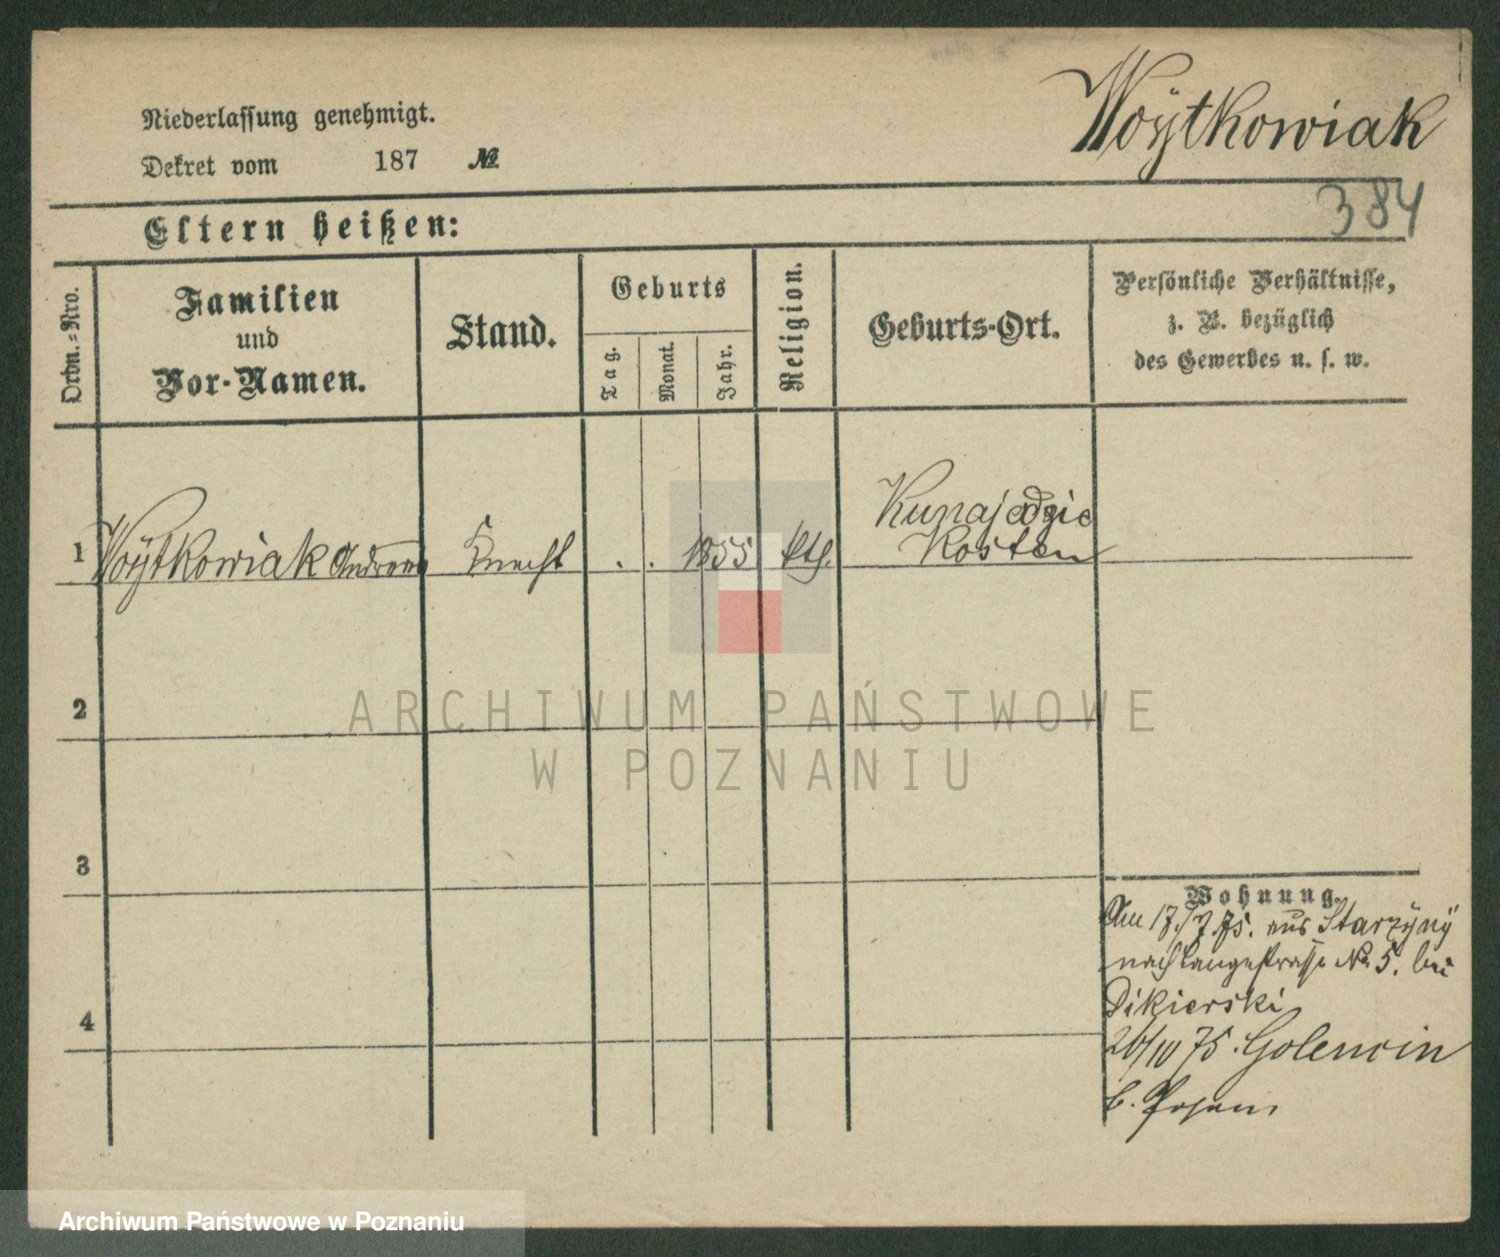 Niederlassung genehmigt.
Dekret vom 187 №
Woÿtkowiak
384
Eltern heißen:
Ordn.-Nro.
Familien und Vor-Namen.
Stand.
Geburts
Tag.
Monat.
Jahr.
Religion.
Geburts-Ort.
Persönliche Verhältnisse,
z. B. bezüglich
des Gewerbes u. s. w.
1 Woÿtkowiak Andreas Knecht . . 1855 kth.
Kosten
2
3
4
Wohnung.
Am 17./7.75. aus Starzÿnÿ
nach Langestrasse No 5. bei
Dikierski
26/10 75. Golencin
b. Posen
ARCHIWUM PAŃSTWOWE
W POZNANIU
Archiwum Państwowe w Poznaniu